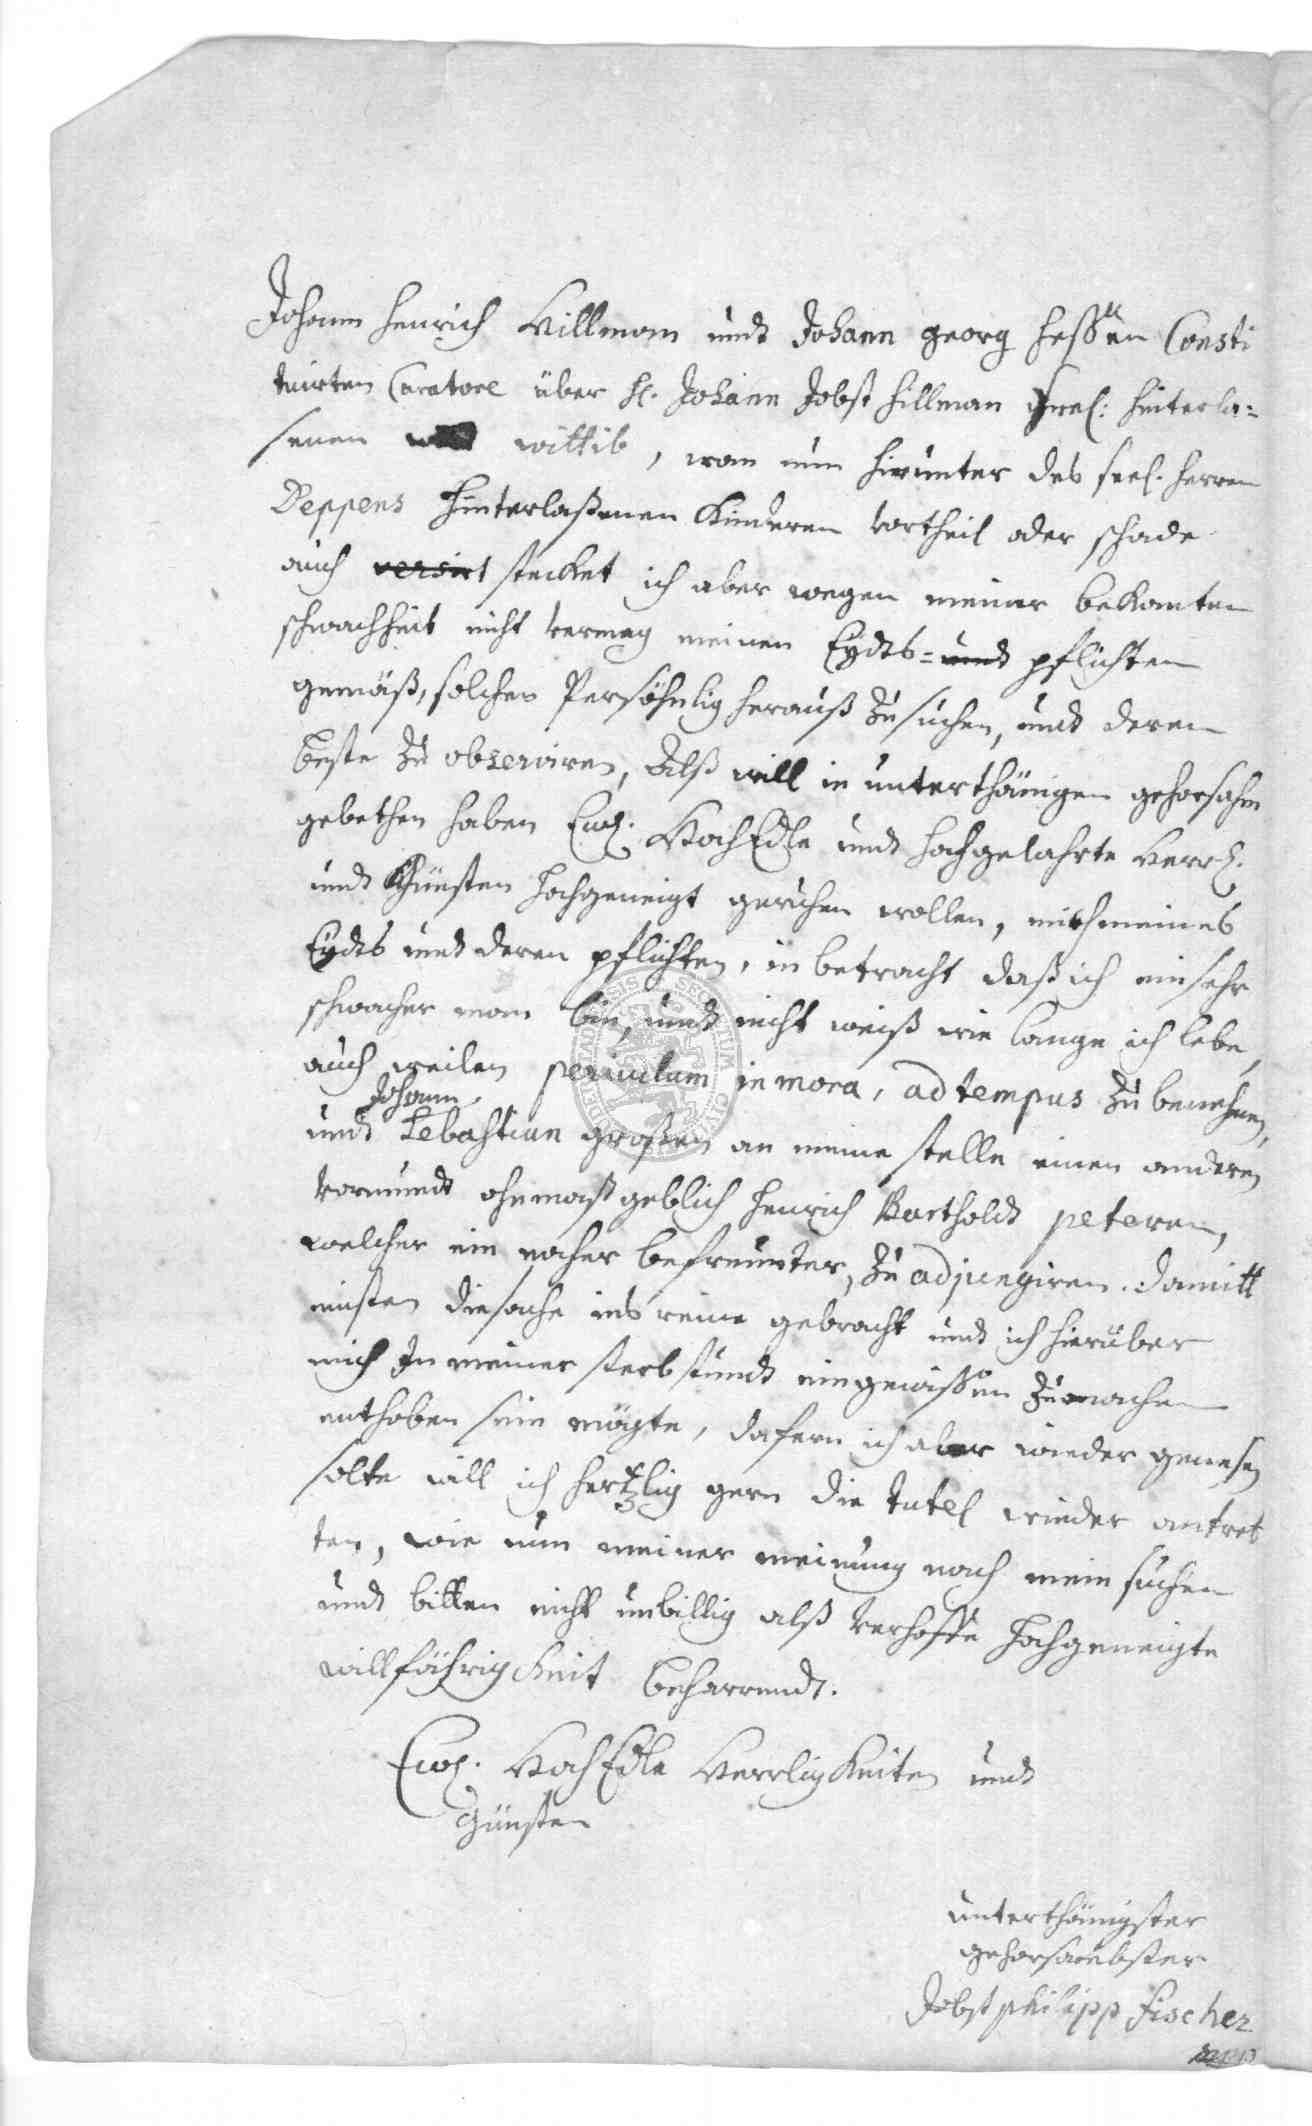 Johann Henrich Hillmom undt Johann Georg Hessen Consti
tuirten Curatore über H. Johann Jobst Hillman seel: hinterla=
senen wittib, wan nun hirunter des seel. Herren
Deppens hinterlaßenen Kinderen vortheil oder schade
auch versirt stecket ich aber wegen meiner bekanten
schwachheit nicht vermag meinen Eydts= undt pflichten
gemäß, solches Persöhnlig herauß zu suchen, undt deren
beste zu observiren, Alß will in unterthänigen gehorsahm
gebethen haben Ew. HochEdle undt hochgelahrte Herrl.
undt Günsten hochgeneigt geruhen wollen, mich meines
Eydts undt deren pflichten, in betracht daß ich ein sehr
schwacher man bin, undt nicht weiß wie lange ich lebe,
auch weilen periculum in mora, ad tempus zu benehmen,
Johann
undt Sebastian großen an meine stelle einen anderen
vormundt ohnmaßgeblich Henrich Bartholdt peteren,
welcher ein naher befreunter, zu adjungiren. damitt
einsten die sache ins reine gebracht undt ich hierüber
mich In meiner sterb stundt ein gewissen zu machen
enthoben sein mögte, dafern ich aber wieder genesen
solte will ich hertzlig gern die tutel wieder antret
ten, wie nun meiner meinung nach mein suchen
undt bitten nicht unbillig alß verhoffe hochgeneigte
willfährigkeit beharrendt.
Ew. HochEdle Herrligkeiten undt
Günsten
unterthänigster
gehorsambster
Jobst philipp Fischer